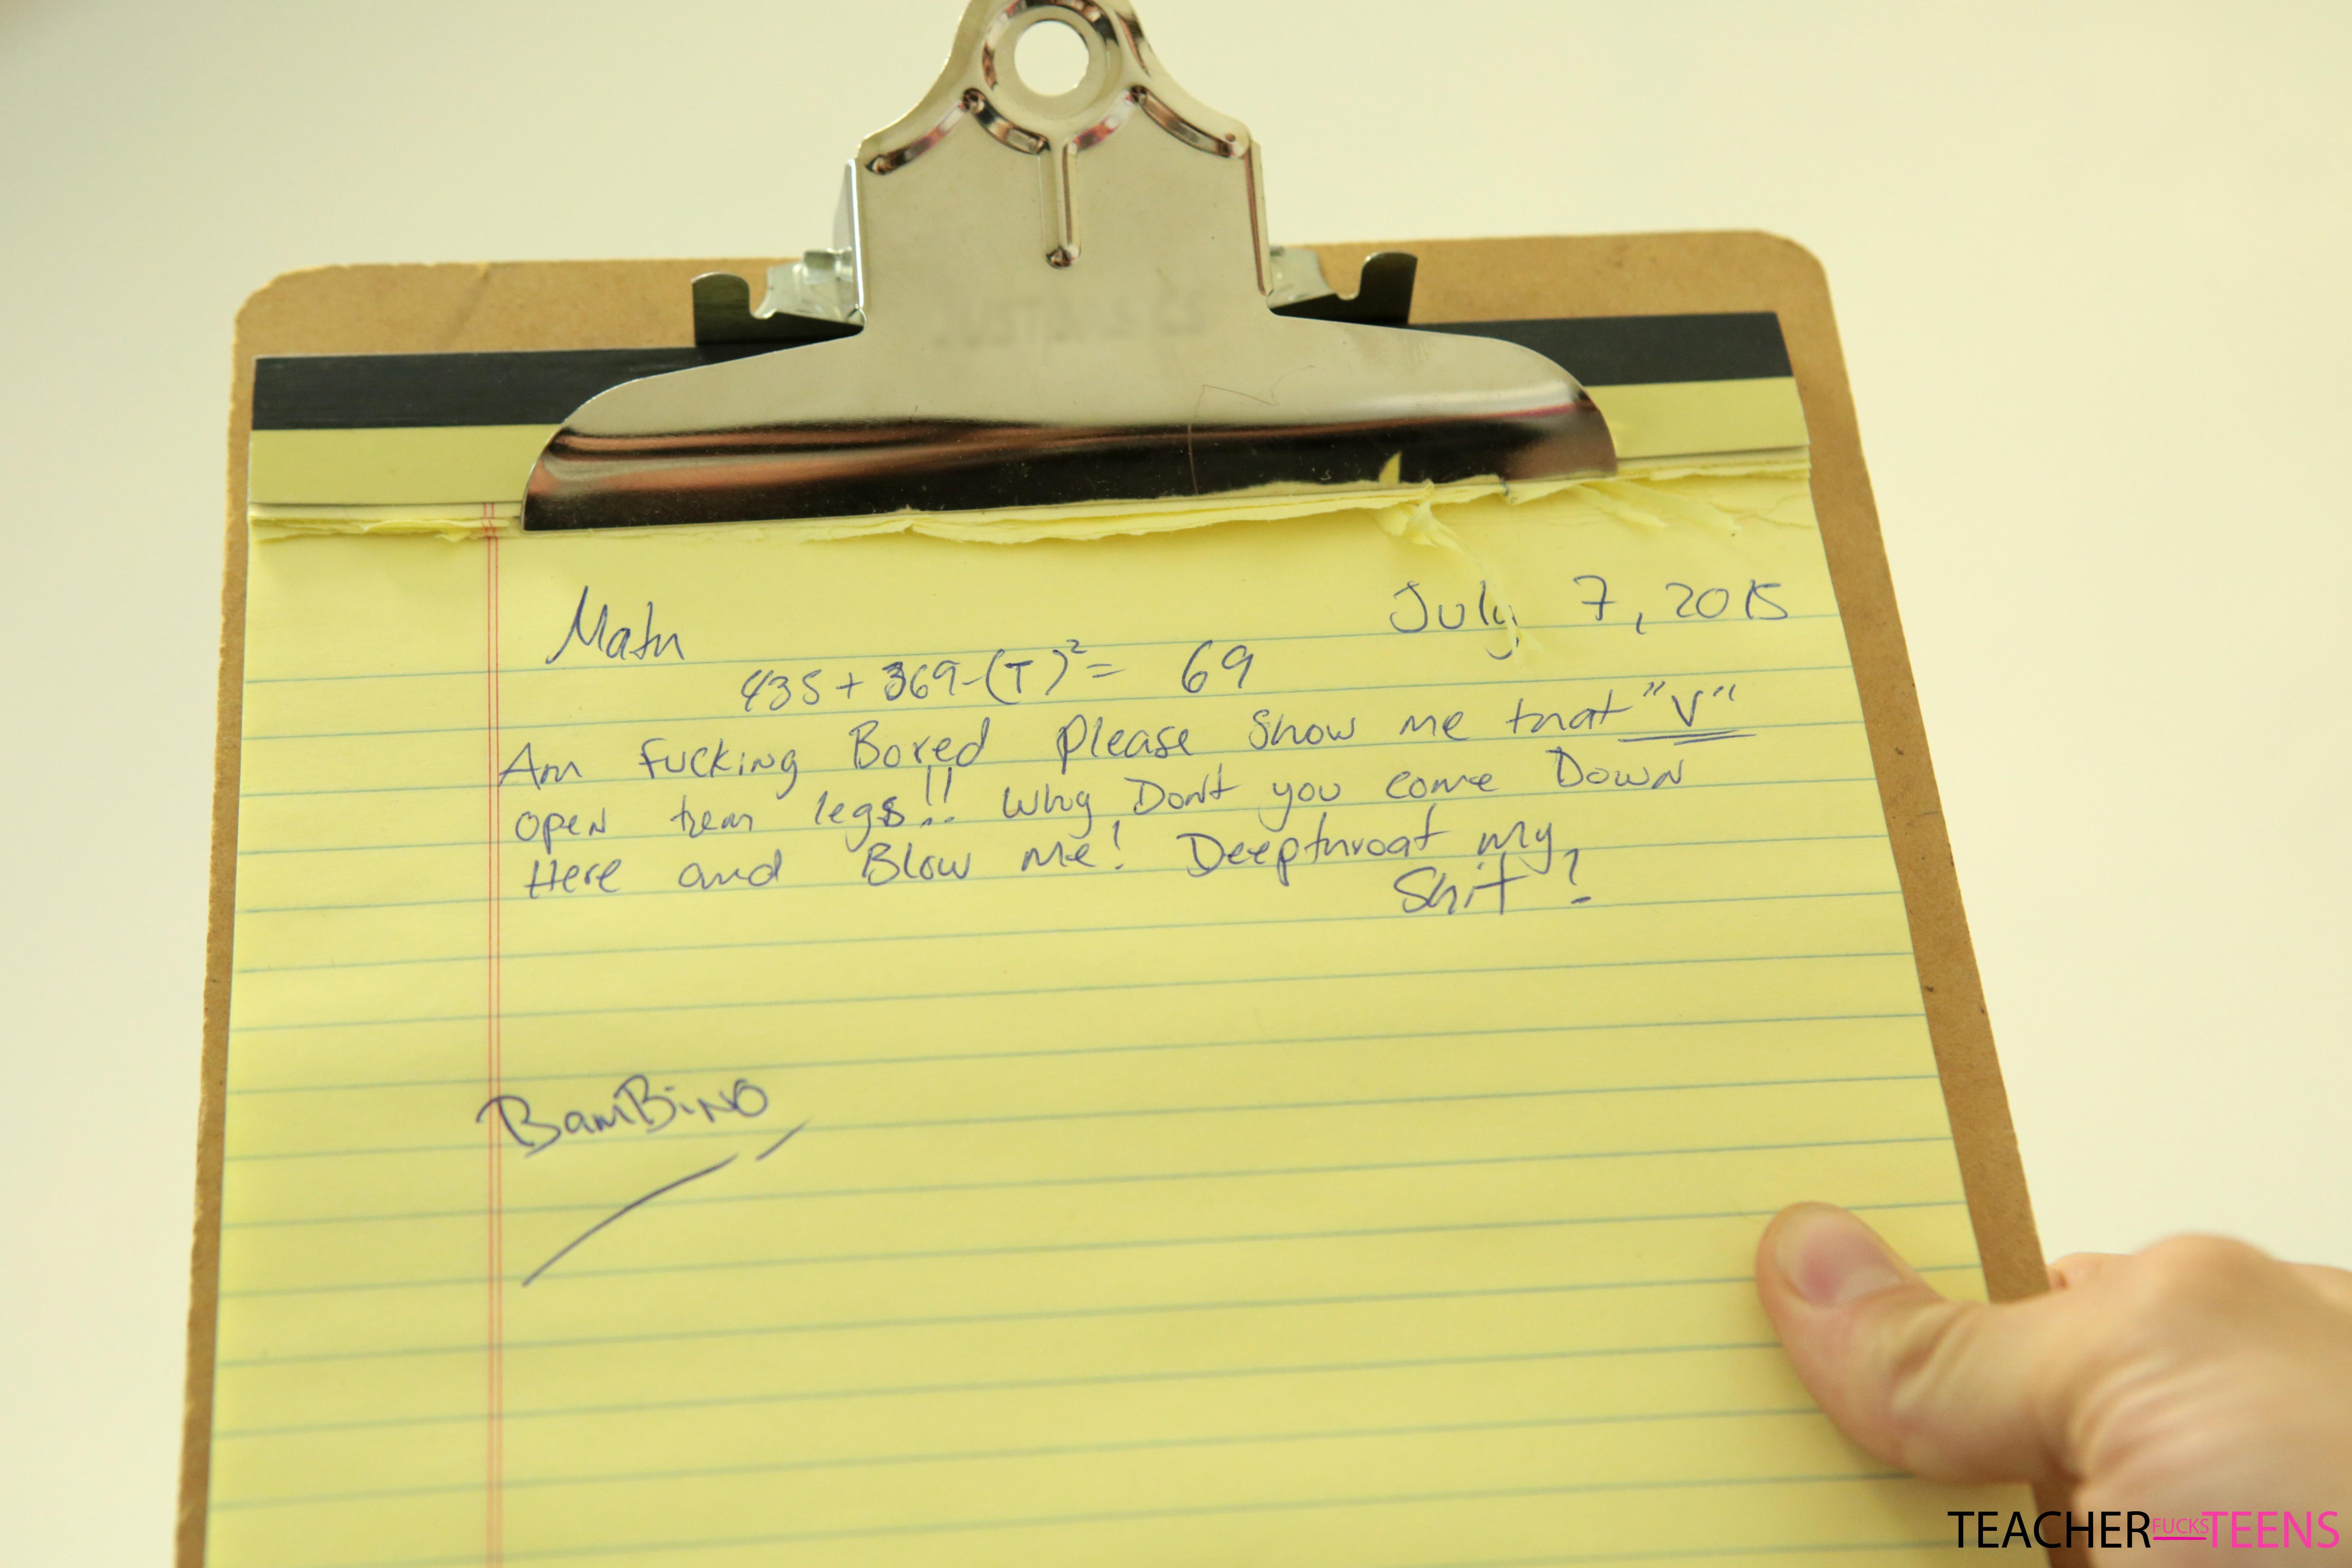 Math July 7, 2015
435 + 369 - (T)² = 69
Am Fucking Bored Please Show me that "V"
open them legs!! Why Dont you come Down
Here and Blow me! Deepthroat my
Shit!
BamBino
TEACHER FUCKS TEENS